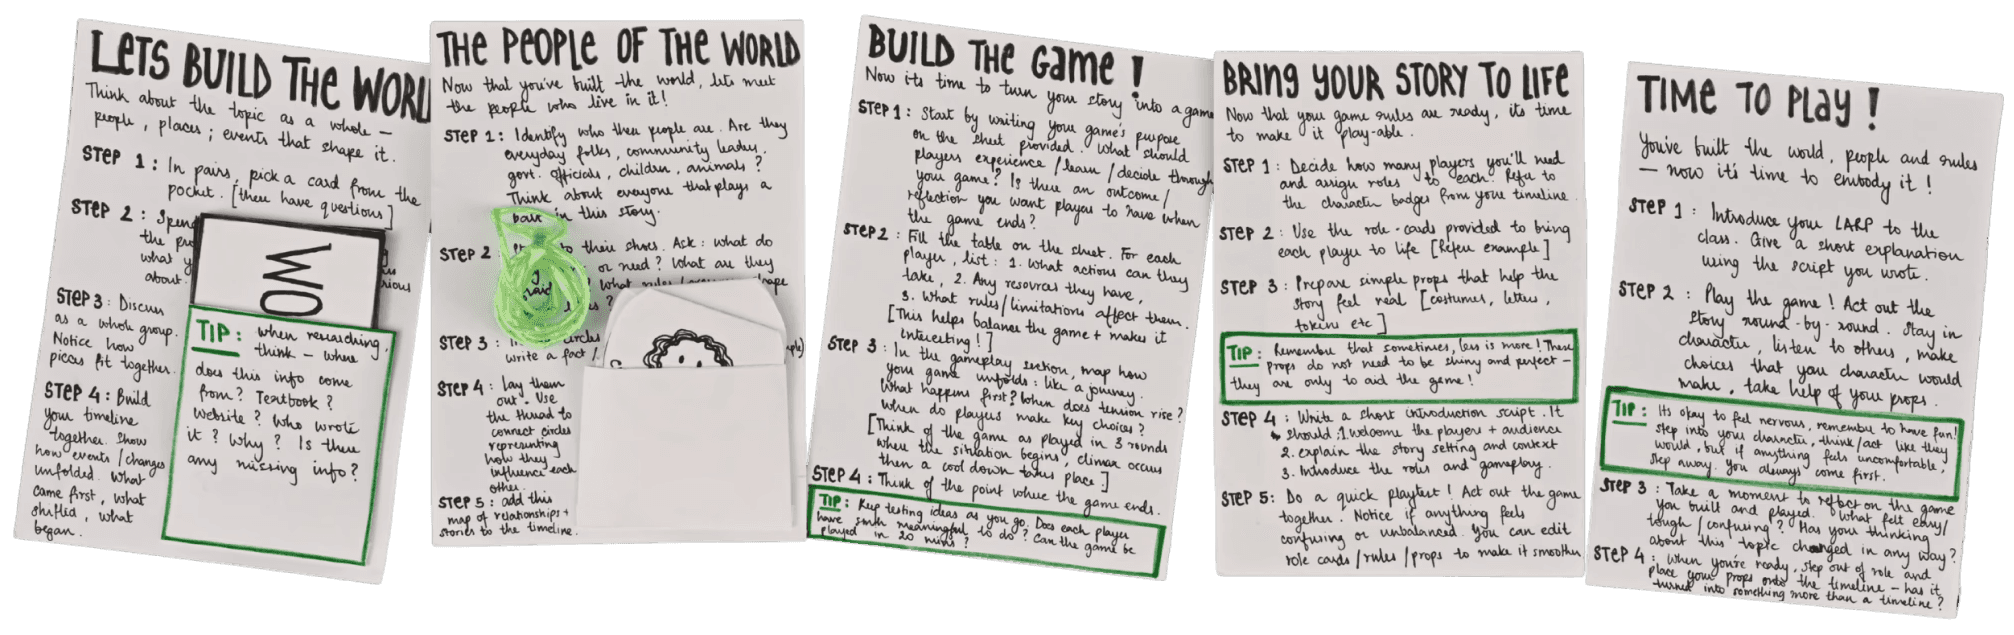 LETS BUILD THE WORL
Think about the topic as a whole —
people, places, events that shape it.
STEP 1: In pairs, pick a card from the
pocket. [these have questions]
STEP 2: Spen
the pro
what y
about.
rious
STEP 3: Discuss
as a whole group.
Notice how
pieces fit together.
STEP 4: Build
your timeline
together. Show
how events/changes
unfolded. What
came first, what
shifted, what
began.
WO
TIP: when researching,
think — where
does this info come
from? Textbook?
Website? Who wrote
it? Why? Is there
any missing info?
THE PEOPLE OF THE WORLD
Now that you've built the world, lets meet
the people who live in it!
STEP 1: Identify who these people are. Are they
everyday folks, community leader,
govt. officials, children, animals?
Think about everyone that plays a
part in this story.
STEP 2
to their shoes. Ask: what do
or need? What are they
what rules/
STEP 3: circles
write a fact/
STEP 4: lay them
out. Use
the thread to
connect circles
representing
how they
influence each
other.
STEP 5: add this
map of relationships +
stories to the timeline.
BUILD THE GAME!
Now its time to turn your story into a game
STEP 1: Start by writing your game's purpose
on the sheet provided. What should
players experience/learn/decide through
your game? Is there an outcome/
reflection you want players to have when
the game ends?
STEP 2: Fill the table on the sheet. For each
player, list: 1. What actions can they
take, 2. Any resources they have,
3. What rules/limitations affect them.
[This helps balance the game + makes it
interesting!]
STEP 3: In the gameplay section, map how
your game unfolds: like a journey.
What happens first? When does tension rise?
When do players make key choices?
[Think of the game as played in 3 rounds
where the situation begins, climax occurs
then a cool down takes place.]
STEP 4: Think of the point where the game ends.
TIP: Keep testing ideas as you go. Does each player
have smth meaningful to do? Can the game be
played in 20 mins?
BRING YOUR STORY TO LIFE
Now that your game rules are ready, its time
to make it play-able.
STEP 1: Decide how many players you'll need
and assign roles to each. Refer to
the character badges from your timeline
STEP 2: Use the role-cards provided to bring
each player to life [Refer example]
STEP 3: Prepare simple props that help the
story feel real [costumes, letters,
tokens etc]
TIP: Remember that sometimes, less is more! These
props do not need to be shiny and perfect —
they are only to aid the game!
STEP 4: Write a short introduction script. It
should: 1. welcome the players + audience
2. explain the story setting and context
3. Introduce the roles and gameplay.
STEP 5: Do a quick playtest! Act out the game
together. Notice if anything feels
confusing or unbalanced. You can edit
role cards/rules/props to make it smoother
TIME TO PLAY!
You've built the world, people and rules
— now it's time to embody it!
STEP 1: Introduce your LARP to the
class. Give a short explanation
using the script you wrote.
STEP 2: Play the game! Act out the
story round-by-round. Stay in
character, listen to others, make
choices that your character would
make, take help of your props.
TIP: Its okay to feel nervous, remember to have fun!
Step into your character, think/act like they
would, but if anything feels uncomfortable,
step away. You always come first.
STEP 3: Take a moment to reflect on the game
you built and played. What felt easy/
tough/confusing? Has your thinking
about this topic changed in any way?
STEP 4: When you're ready, step out of role and
place your props onto the timeline — has it
turned into something more than a timeline?